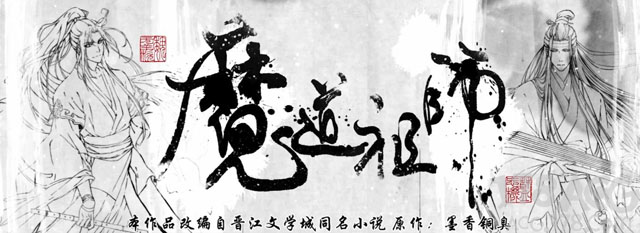 魔道祖师
本作品改编自晋江文学城同名小说 原作：墨香铜臭